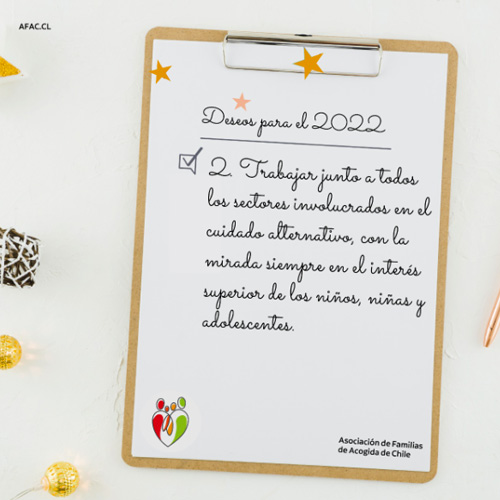 AFAC.CL
Deseos para el 2022
2. Trabajar junto a todos
los sectores involucrados en el
cuidado alternativo, con la
mirada siempre en el interés
superior de los niños, niñas y
adolescentes.
Asociación de Familias
de Acogida de Chile